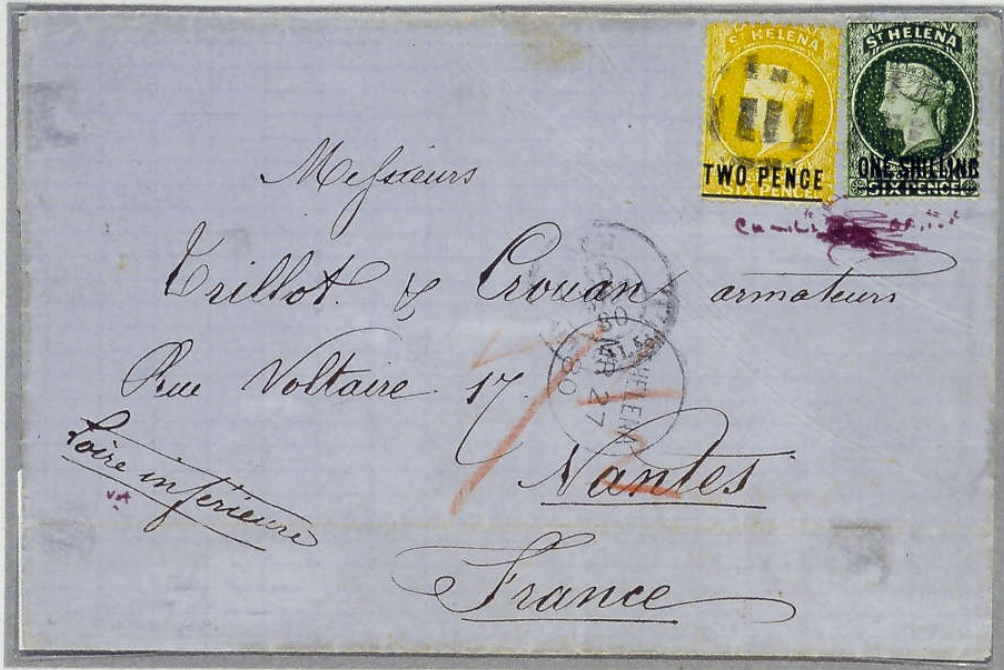 ST HELENA
TWO PENCE
SIX PENCE
ST HELENA
ONE SHILLING
SIX PENCE
Messieurs
Trillot & Crouan armateurs
Rue Voltaire 17
Nantes
Loire inférieure
France
ST HELENA
AP 27
80